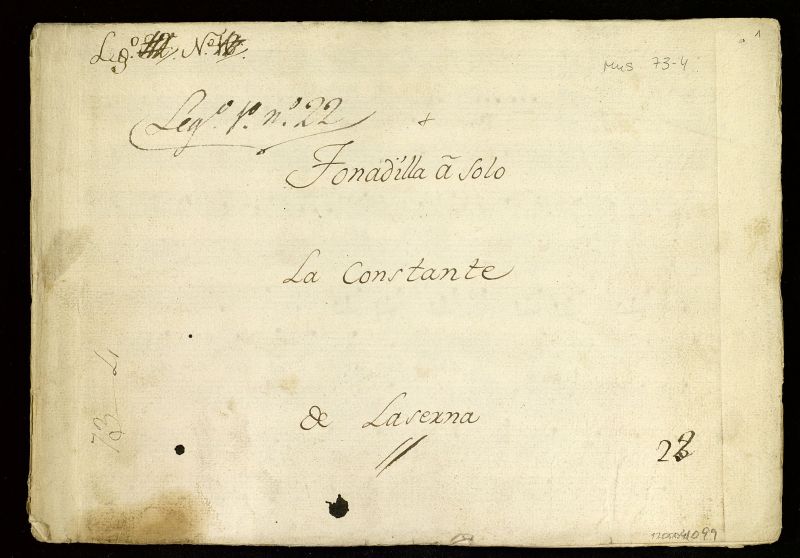 Leg.º N.º
Mus 73-4
1
Leg.º 1.º n.º 22
+
Tonadilla â Solo
La Constante
de Laserna
73-4
22